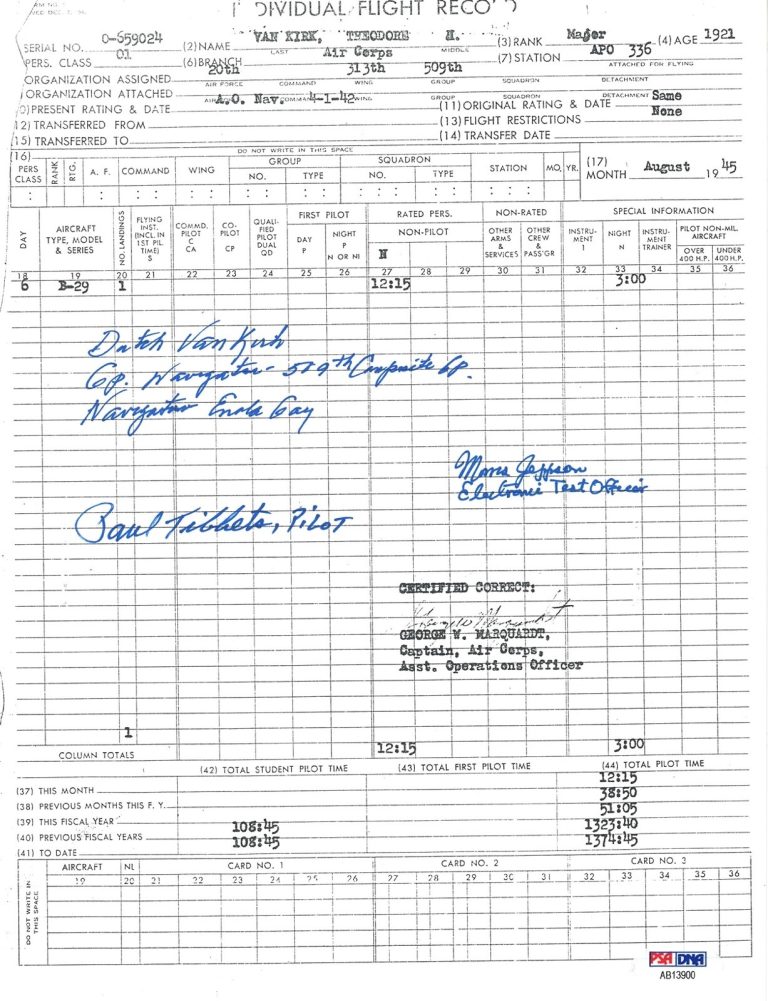 DIVIDUAL FLIGHT RECO
SERIAL NO. O-659024 (2) NAME VAN KIRK, THEODORE H. (3) RANK Major (4) AGE 1921
LAST MIDDLE
PERS. CLASS 01 (6) BRANCH Air Corps (7) STATION APO 336
ORGANIZATION ASSIGNED 20th 313th 509th ATTACHED FOR FLYING
AIR FORCE COMMAND WING GROUP SQUADRON DETACHMENT
ORGANIZATION ATTACHED
AIR FORCE COMMAND WING GROUP SQUADRON DETACHMENT
PRESENT RATING & DATE A.O. Nav. 4-1-42 (11) ORIGINAL RATING & DATE Same
(12) TRANSFERRED FROM (13) FLIGHT RESTRICTIONS None
(15) TRANSFERRED TO (14) TRANSFER DATE
DO NOT WRITE IN THIS SPACE
(16) GROUP SQUADRON (17) MONTH August 1945
PERS CLASS RANK RTG. A. F. COMMAND WING NO. TYPE NO. TYPE STATION MO. YR.
DAY AIRCRAFT TYPE, MODEL & SERIES NO. LANDINGS FLYING INST. (INCL. IN 1ST PIL. TIME) S COMMD. PILOT C CA CO-PILOT CP QUALIFIED PILOT DUAL QD FIRST PILOT DAY P NIGHT P N OR NI RATED PERS. NON-PILOT N NON-RATED OTHER ARMS & SERVICES OTHER CREW & PASS'GR SPECIAL INFORMATION INSTRUMENT I NIGHT N INSTRUMENT TRAINER PILOT NON-MIL. AIRCRAFT OVER 400 H.P. UNDER 400 H.P.
18 19 20 21 22 23 24 25 26 27 28 29 30 31 32 33 34 35 36
6 B-29 1 12:15 3:00
Dutch Van Kirk
Gp. Navigator - 509th Composite Gp.
Navigator Enola Gay
Morris Jeppson
Electronic Test Officer
Paul Tibbets, PILOT
CERTIFIED CORRECT:
George W. Marquardt
GEORGE W. MARQUARDT,
Captain, Air Corps,
Asst. Operations Officer
1
COLUMN TOTALS 12:15 3:00
(42) TOTAL STUDENT PILOT TIME (43) TOTAL FIRST PILOT TIME (44) TOTAL PILOT TIME
(37) THIS MONTH 12:15
(38) PREVIOUS MONTHS THIS F. Y. 38:50
(39) THIS FISCAL YEAR 51:05
(40) PREVIOUS FISCAL YEARS 108:45 1323:40
(41) TO DATE 108:45 1374:45
AIRCRAFT NL CARD NO. 1 CARD NO. 2 CARD NO. 3
19 20 21 22 23 24 25 26 27 28 29 30 31 32 33 34 35 36
DO NOT WRITE IN THIS SPACE
PSA DNA
AB13900